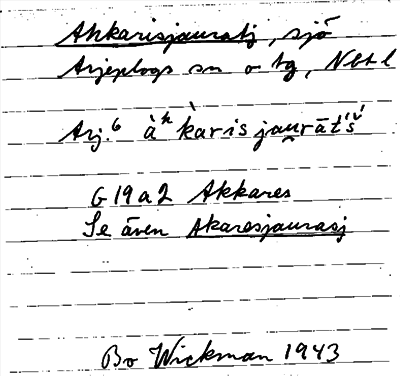 Ahkarisjauratj, sjö
Arjeplogs sn o tg, Nbtl
Arj.⁶ àʰkàrisjau̯rāt́š́
G 19 a 2 Akkares
Se även Akaresjaurasj
Bo Wickman 1943